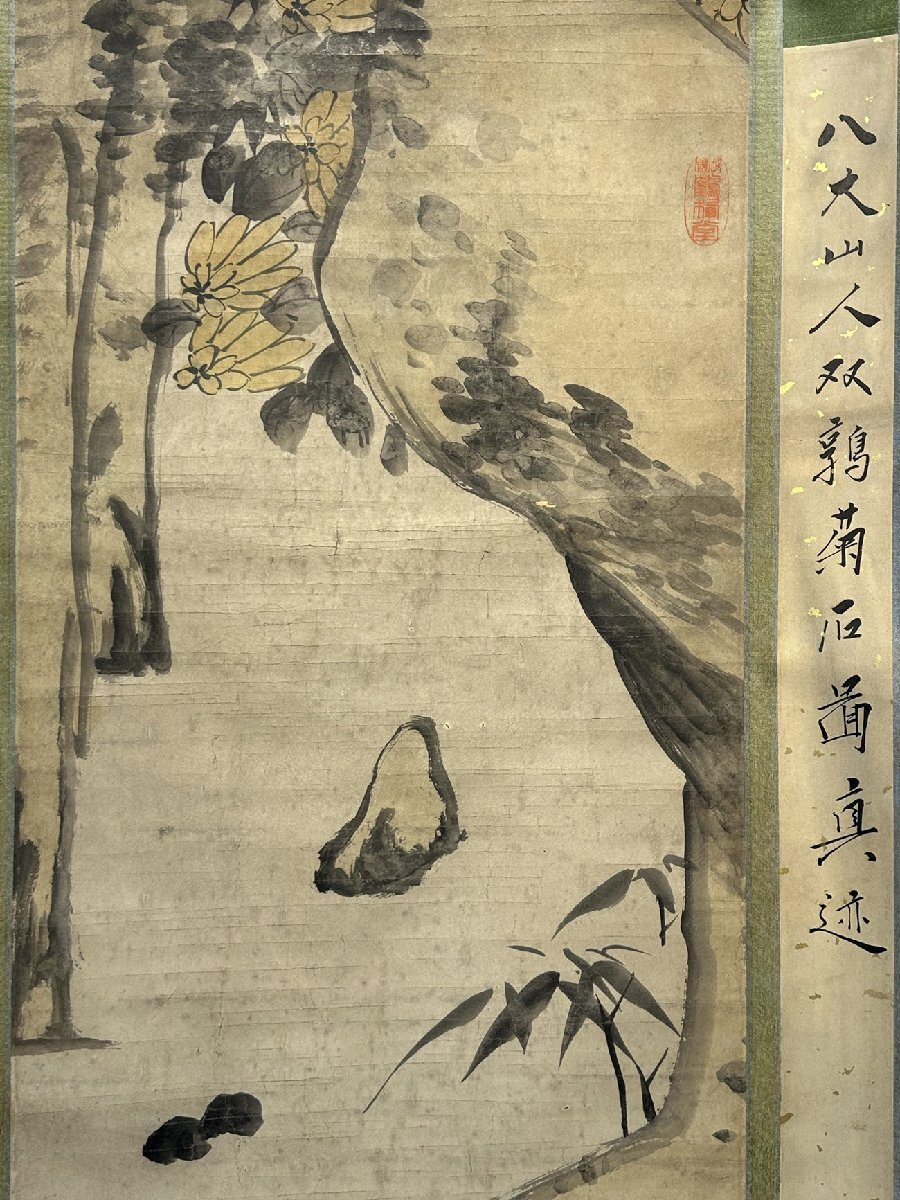 八大山人双鶉菊石啚真迹